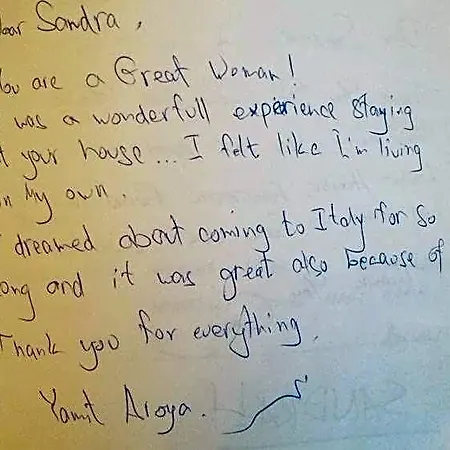 ear Sandra,
You are a Great Woman!
was a wonderfull experience staying
t your house... I felt like I'm living
n My own.
dreamed about coming to Italy for so
ong and it was great also because of
Thank you for everything.
Yamit Aroya.